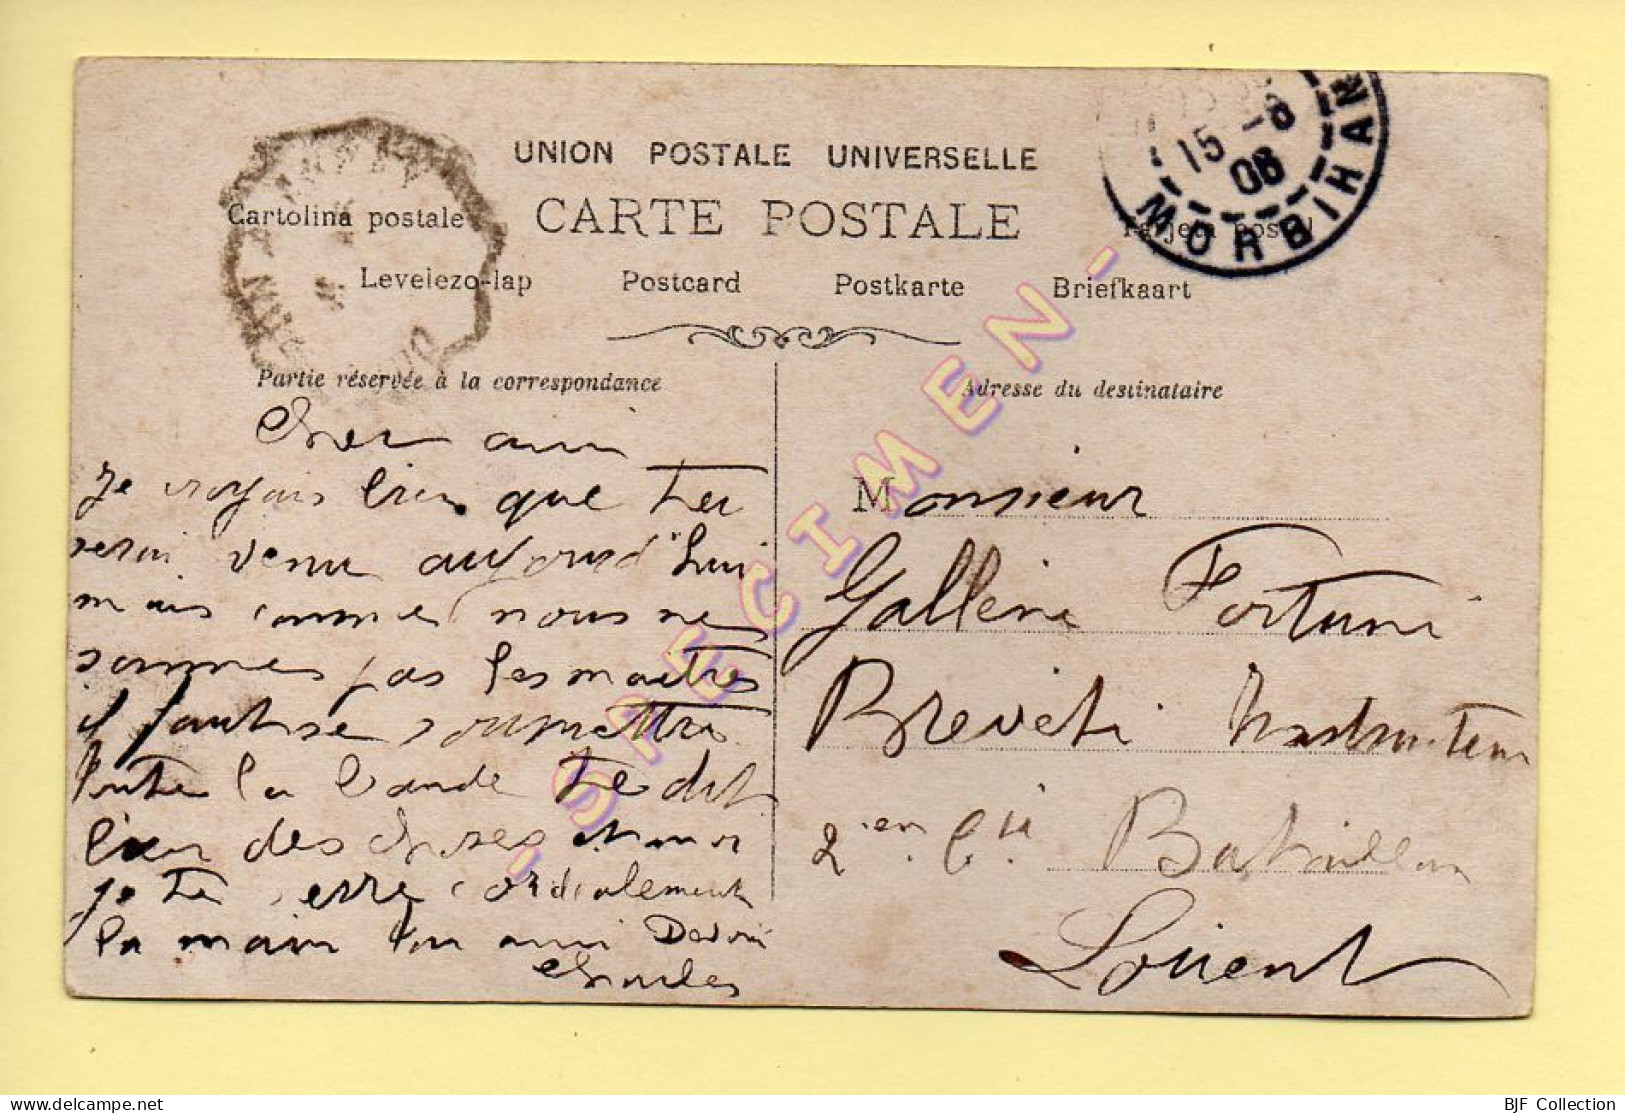 UNION POSTALE UNIVERSELLE
Cartolina postale CARTE POSTALE Tarjeta postal
Levelezo-lap Postcard Postkarte Briefkaart
15 -8
08
MORBIHAN
Partie réservée à la correspondance
Cher ami
Je croyais bien que tu
serai venu aujourd'hui
mais comme nous ne
sommes pas les maitres
il faut se soumettre
toute la bande te dit
bien des choses
je te serre cordialement
la main ton ami
Charles
Adresse du destinataire
Monsieur
Gallène Fortuné
Breveté Instructeur
2 en Cie Bataillon
Lorient
- SPECIMEN -
BJF Collection